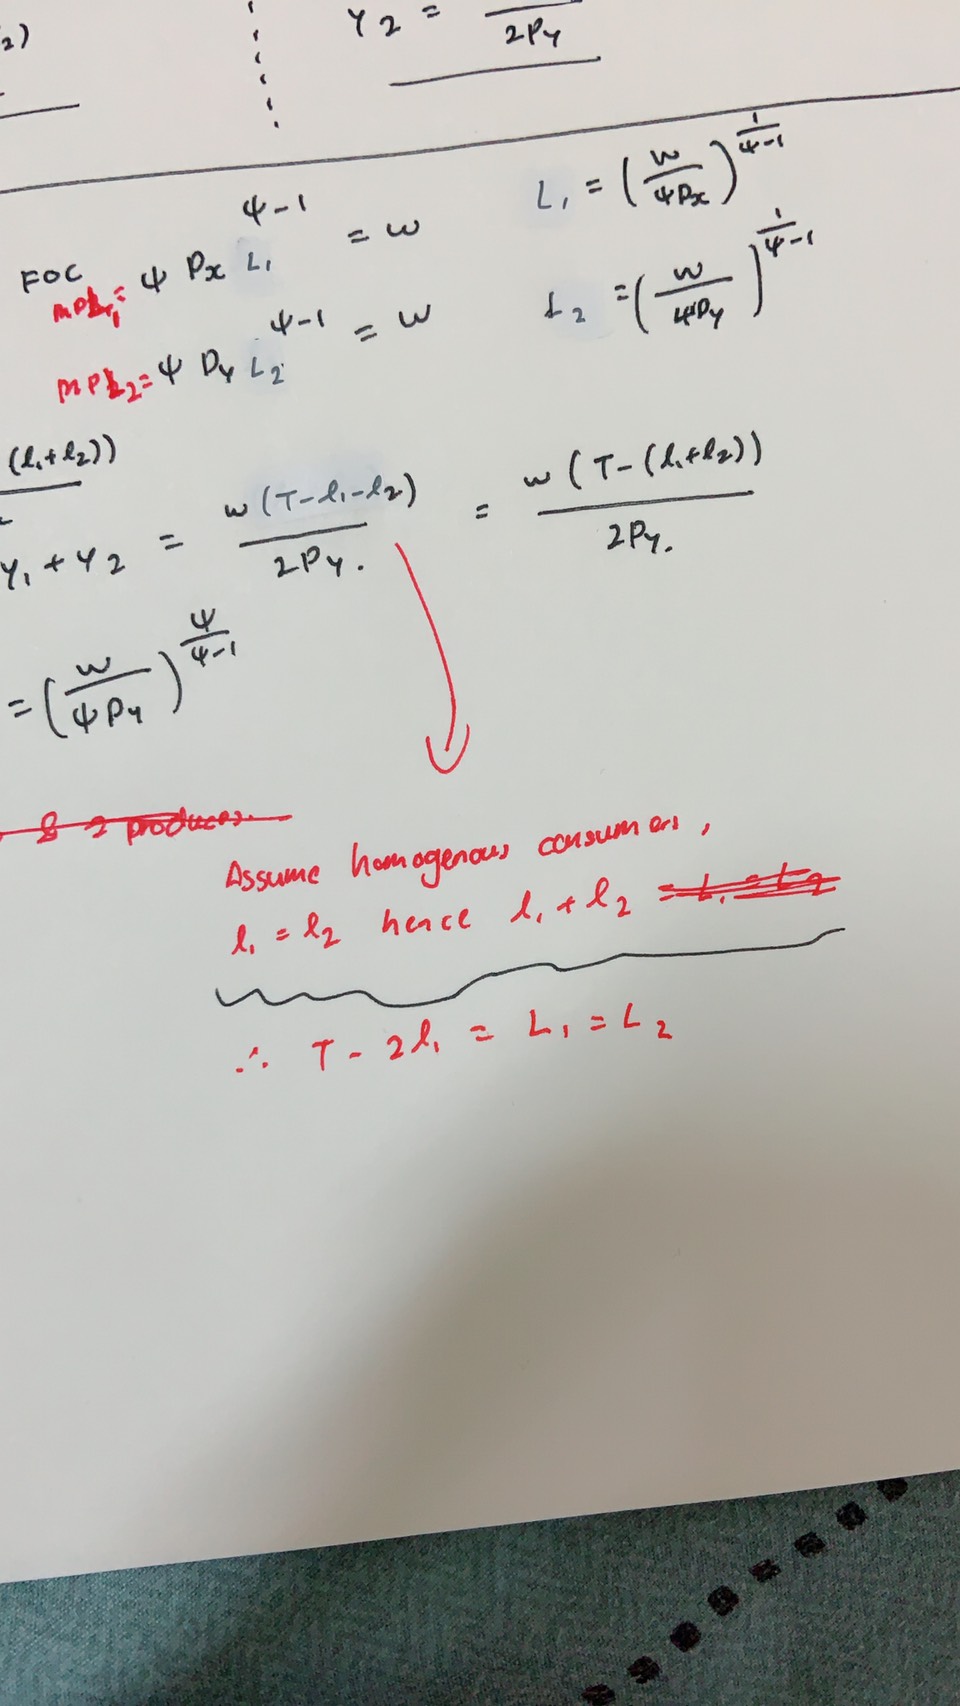 2)
Y2 = 
2Py
FOC
MPL1= ψ Px L1^(ψ-1) = w
L1 = (w/ψPx)^(1/(ψ-1))
MPL2= ψ Py L2^(ψ-1) = w
L2 = (w/ψPy)^(1/(ψ-1))
(l1+l2))
Y1 + Y2 = w(T-l1-l2)/2Py. = w(T-(l1+l2))/2Py.
= (w/ψPy)^(ψ/(ψ-1))
Assume homogenous consumers,
l1 = l2 hence l1 + l2 = L1 = L2
∴ T - 2l1 = L1 = L2